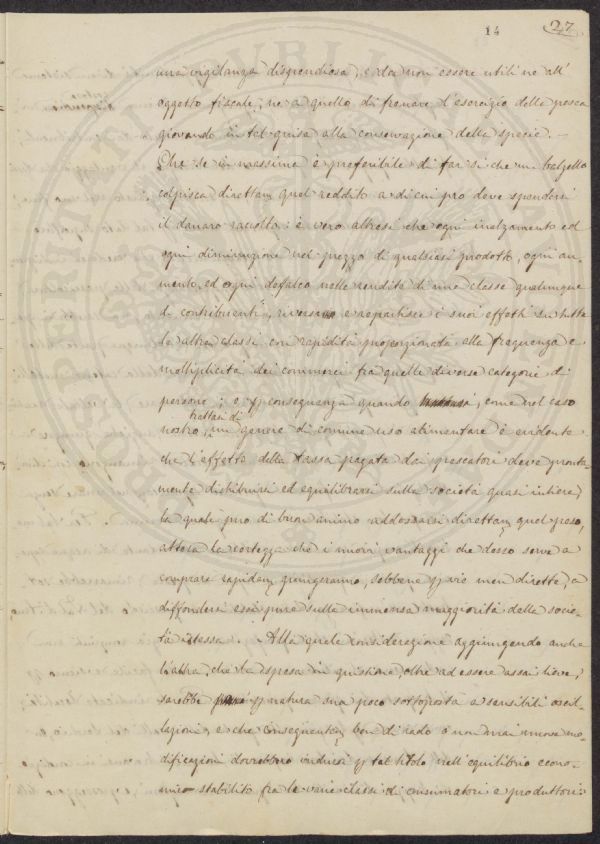 14 27
una vigilanza dispendiosa, e da non essere utili nè all'
oggetto fiscale, nè a quello di frenare l'esercizio della pesca
giovando in tal guisa alla conservazione della specie. –
Che se in massima è preferibile di far sì che un balzello
colpisca direttam quel reddito a di cui pro deve spendersi
il danaro raccolto: è vero altresì che ogni inalzamento ed
ogni diminuzione nel prezzo di qualsiasi prodotto, ogni au-
mento, ed ogni defalco nelle rendite di una classe qualunque
di contribuenti, riversa e repartisce i suoi effetti su tutte
le altre classi con rapidità proporzionata alla frequenza e
moltiplicità dei commerci fra quelle diverse categorie di
persone; e p conseguenza quando, come nel caso
trattasi di
nostro, un genere di comune uso alimentare è evidente
che l'effetto della tassa pagata dai pescatori deve pronta-
mente distribuirsi ed equilibrarsi sulla società quasi intiera,
la quale può di buon animo addossarsi direttam quel peso,
attesa la certezza che i nuovi vantaggi che desso serve a
comprare rapidam giungeranno, sebbene p vie men dirette, a
diffondersi essi pure sulla immensa maggiorità della socie-
tà istessa. Alla quale considerazione aggiungendo anche
l'altra, che la spesa in quistione, oltre ad essere assai lieve,
sarebbe p natura sua poco sottoposta a sensibili oscil-
lazioni, e che conseguentem ben di rado o non mai nuove mo-
dificazioni dovrebbero indursi p tal titolo nell'equilibrio econo-
mico stabilito fra le varie classi di consumatori e produttori: